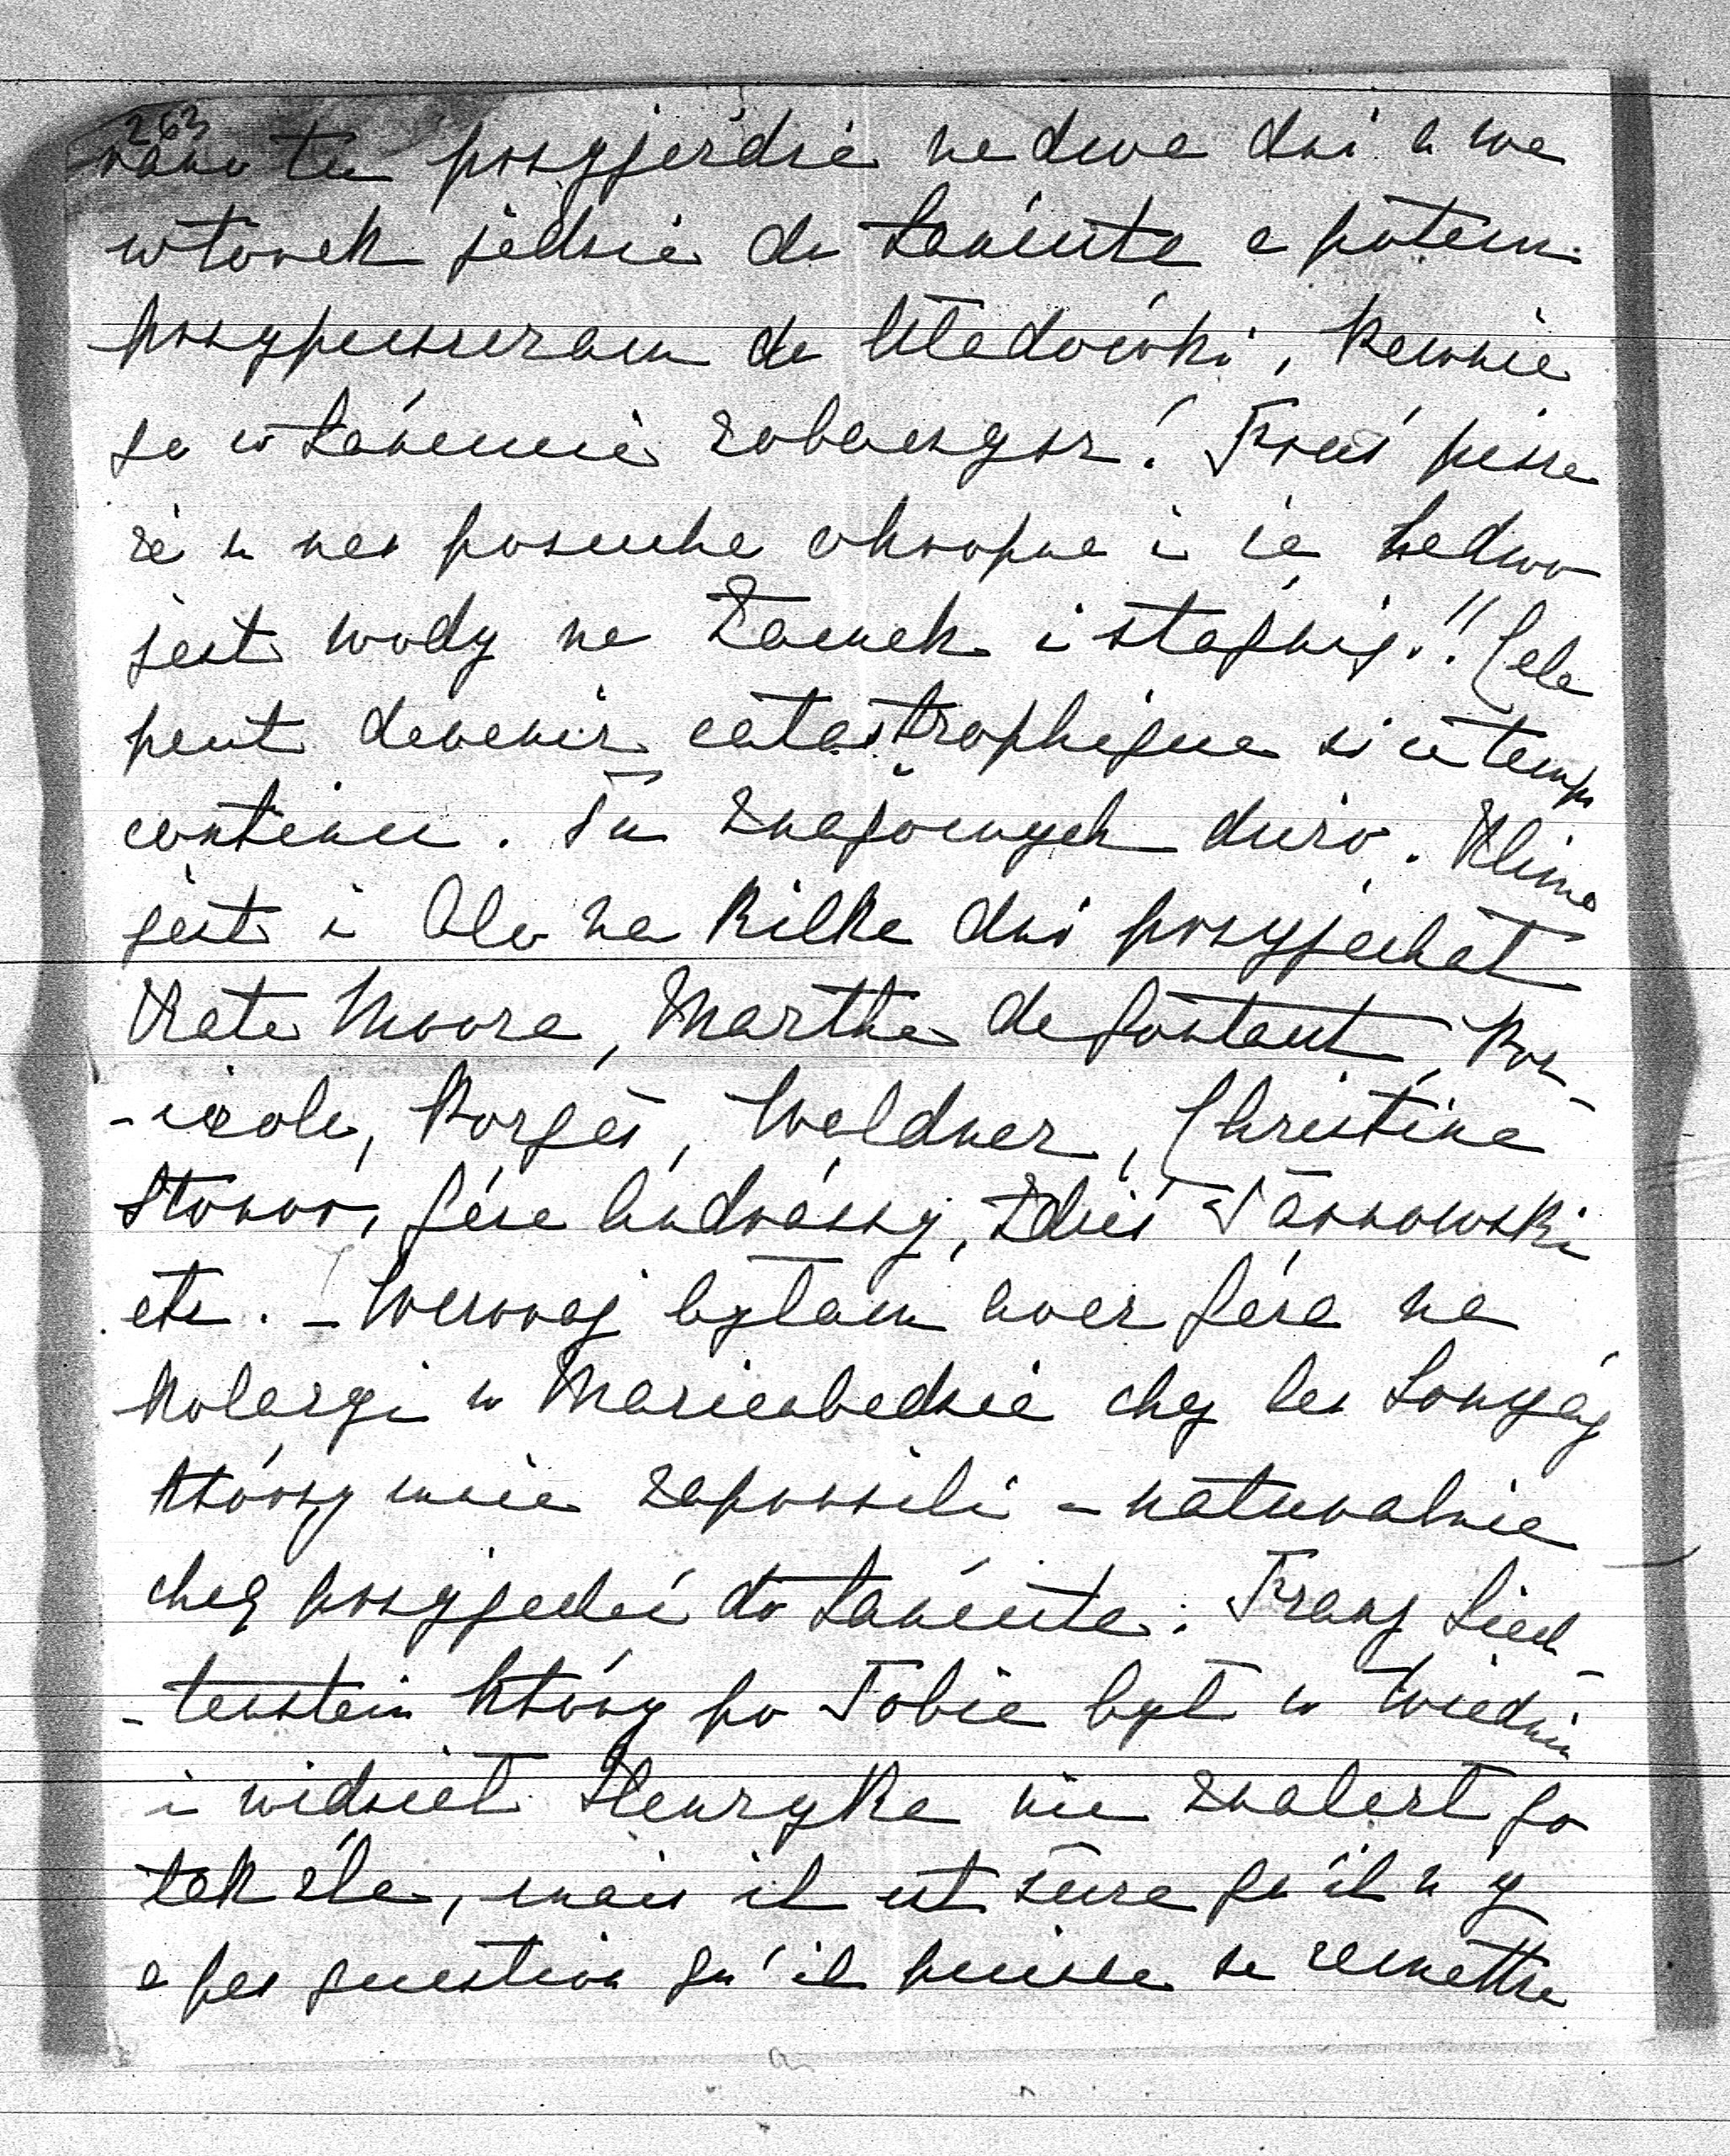 263
rano tu przyjeżdża na dwa dni a we
wtorek jedzie do Łańcuta a potem
przypuszczam do Władówki, Pewnie
go w Łańcucie zobaczysz! Fruś pisze
że u nas posucha okropna i że ledwo
jest wody na Zamek i stajnię!! Cela
peut devenir catastrophique si ce temps
continue. Tu znajomych dużo. Klima
jest i Olo na kilka dni przyjechał
Kate Moore, Marthe de Fontaut, Por-
-izole, Porgès, Waldner, Christine
Stonor, Géza Andrássy, Zdziś Tarnowski
etc. – Wczoraj byłam avec Géza na
kolacji w Marienbadzie chez les Lonyáy
którzy mnie zaprosili – naturalnie
chcą przyjechać do Łańcuta. Franz Liech-
-tenstein który po Tobie był w Wiedniu
i widział Henryka nie znalazł go
tak źle, mais il est sûre qu'il n'y
a pas question qu'il puisse se remettre